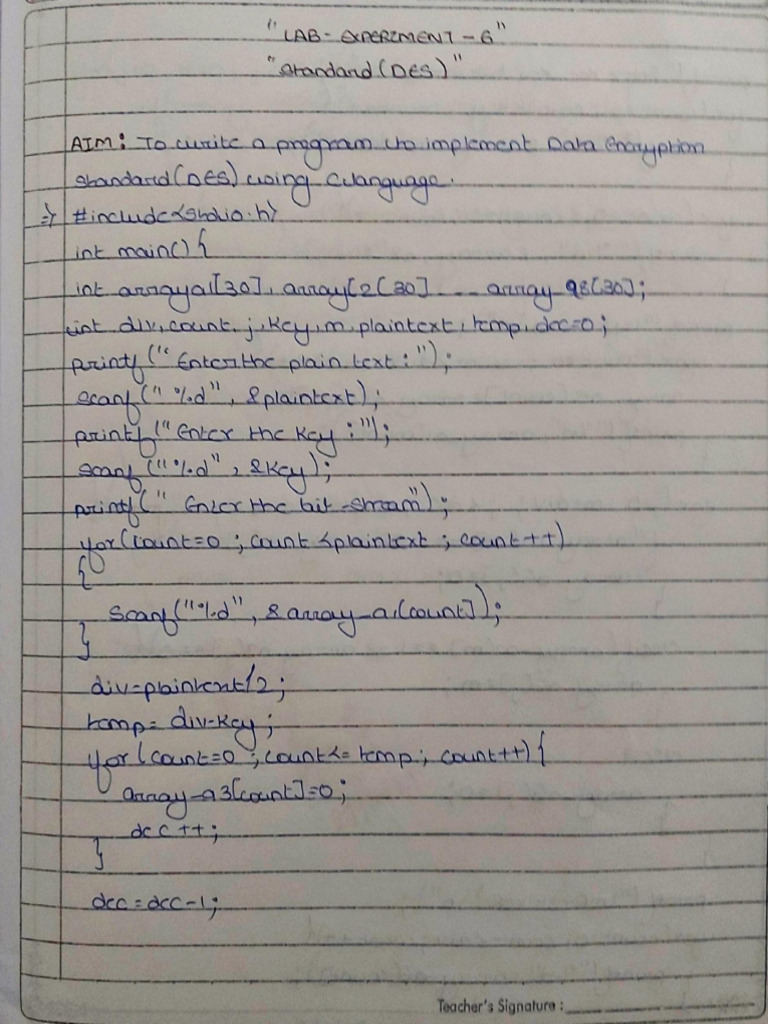 "LAB-EXPERIMENT-6"
"Standard(DES)"
AIM: To write a program to implement Data Encryption
Standard(DES) using C language.
=> #include<stdio.h>
int main() {
int arraya1[30], array[2[30] ... array_98[30];
int div, count, j, key, m, plaintext, temp, dec=0;
printf(" Enter the plain text:");
scanf(" %d", &plaintext);
printf("Enter the key:");
scanf("%d", &key);
printf(" Enter the bit-stream");
for(count=0 ; count <plaintext ; count++)
{
scanf("%d", &array_a1[count]);
}
div=plaintext/2;
temp= div-key;
for (count=0 ; count<= temp; count++) {
array_a3[count]=0;
dec++;
}
dec=dec-1;
Teacher's Signature :